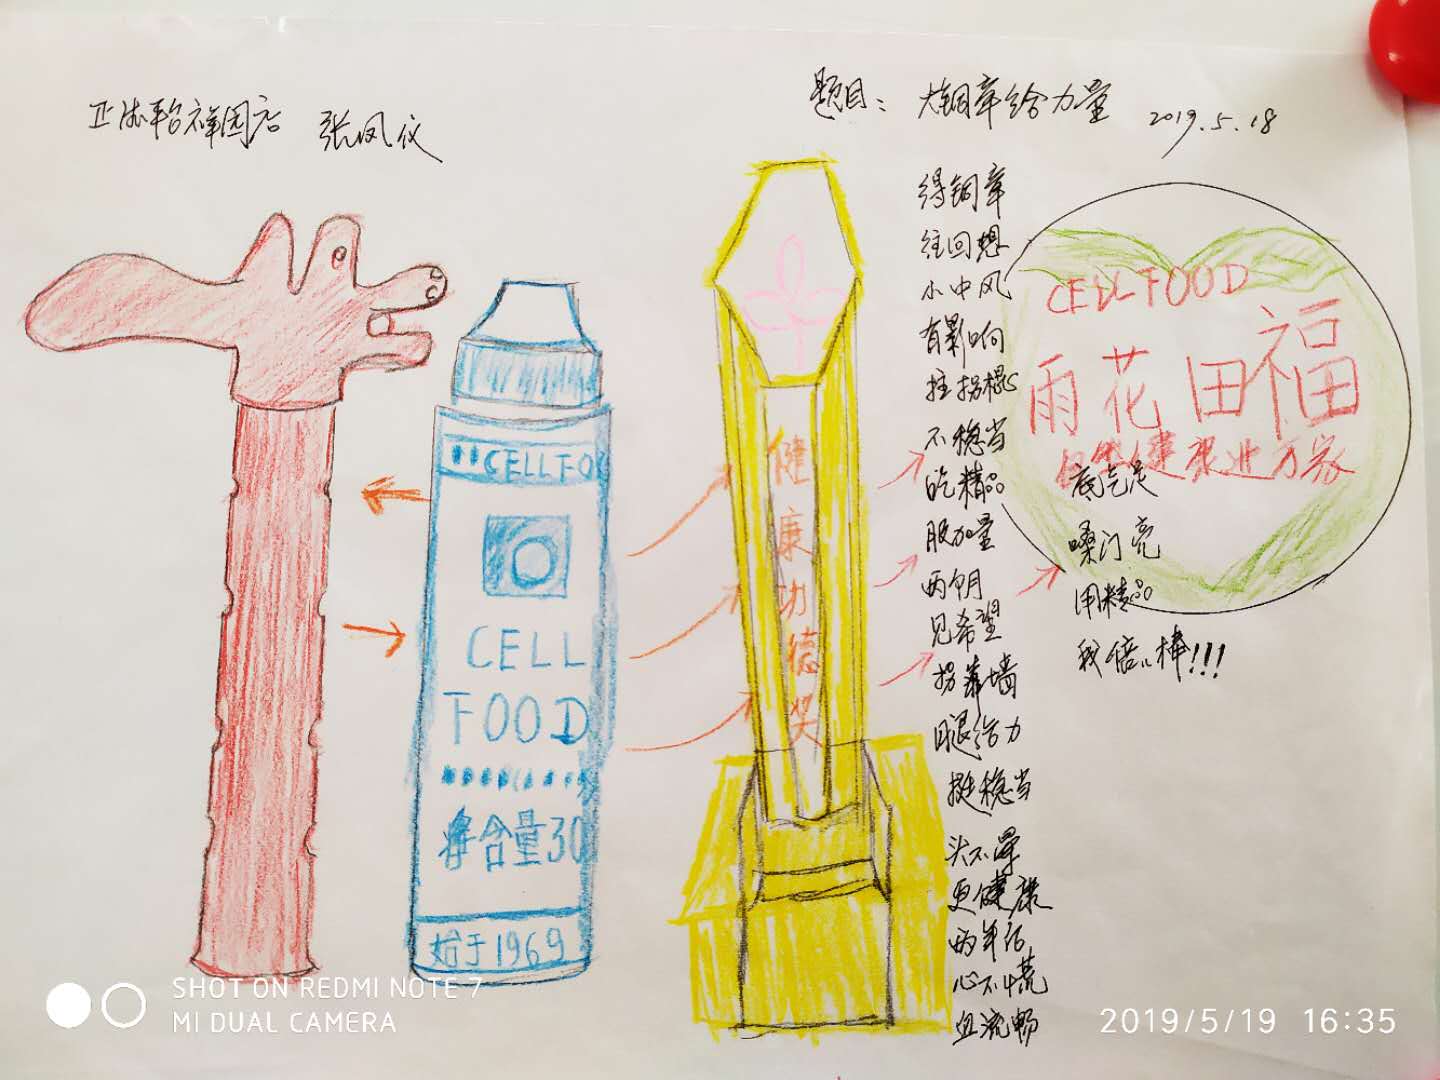 张凤仪
题目：大铜章给力量 2019.5.18
得铜章
往回想
小中风
有影响
拄拐棍
不稳当
吃精品
服加量
两个月
见希望
拐靠墙
腿给力
挺稳当
头不晕
更健康
两年后
心不慌
血流畅
底气足
嗓门亮
用精品
我倍儿棒!!!
CELL FOOD
雨花田福
健康功德奖
CELLFO
CELL
FOOD
净含量30
始于1969
SHOT ON REDMI NOTE 7
MI DUAL CAMERA
2019/5/19 16:35